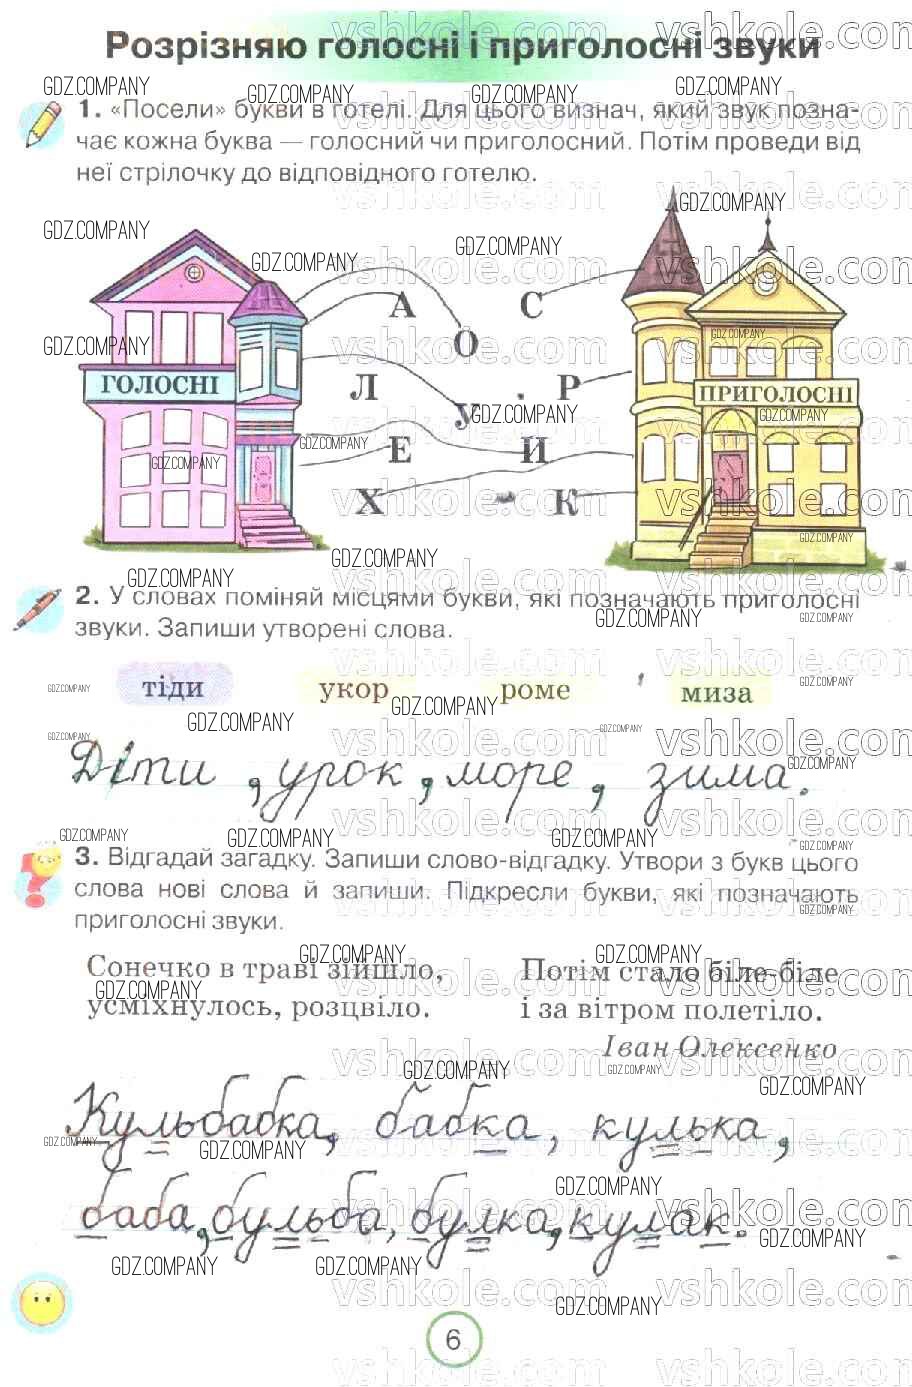 Розрізняю голосні і приголосні звуки
1. «Посели» букви в готелі. Для цього визнач, який звук позна-
чає кожна буква — голосний чи приголосний. Потім проведи від
неї стрілочку до відповідного готелю.
ГОЛОСНІ
ПРИГОЛОСНІ
А С
О
Л Р
У
Е И
Х К
2. У словах поміняй місцями букви, які позначають приголосні
звуки. Запиши утворені слова.
тіди укор роме миза
Діти, урок, море, зима.
3. Відгадай загадку. Запиши слово-відгадку. Утвори з букв цього
слова нові слова й запиши. Підкресли букви, які позначають
приголосні звуки.
Сонечко в траві зійшло,
усміхнулось, розцвіло.
Потім стало біле-біле
і за вітром полетіло.
Іван Олексенко
Кульбабка, бабка, кулька,
баба, бульба, булка, кулак.
6
GDZ.COMPANY
vshkole.com